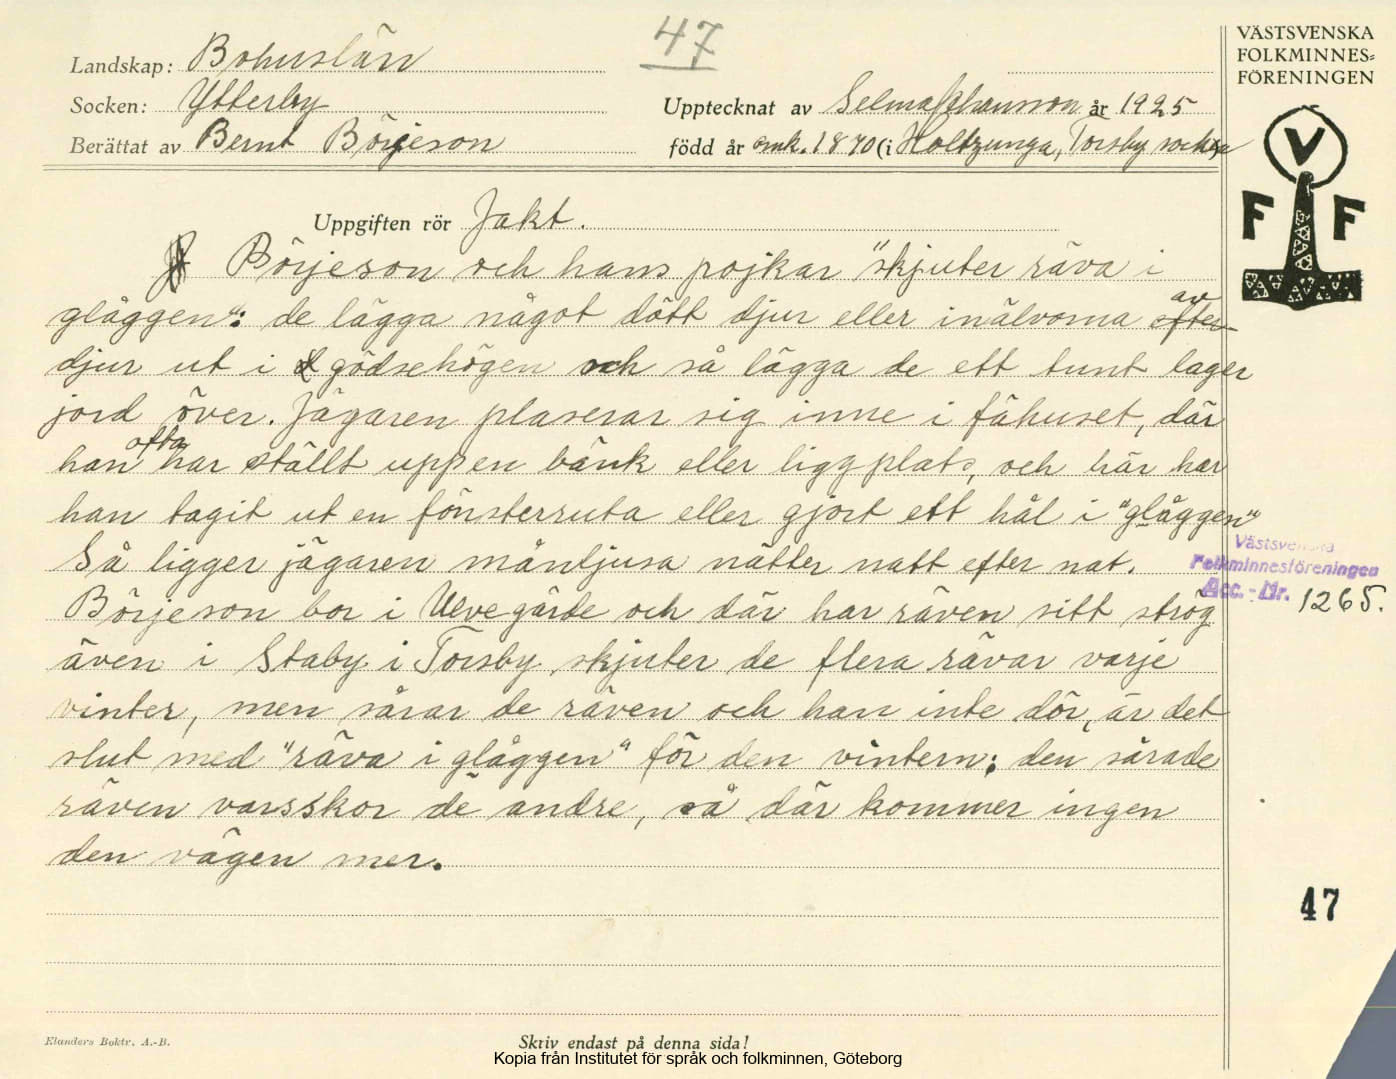 47
VÄSTSVENSKA
FOLKMINNES-
FÖRENINGEN
Landskap: Bohuslän
Socken: Ytterby
Upptecknat av Selma Johansson år 1925
Berättat av Bernt Börjeson
född år omk. 1870 (i Holtzunga, Torsby socken
V
F F
Uppgiften rör Jakt.
Börjeson och hans pojkar "skjuter räva i
glåggen": de lägga något dött djur eller inälvorna av efter
djur ut i gödsehögen och så lägga de ett tunt lager
jord över. Jägaren plaserar sig inne i fähuset, där
han ofta har ställt upp en bänk eller liggplats, och här har
han tagit ut en fönsterruta eller gjort ett hål i "glåggen"
Så ligger jägaren månljusa nätter natt efter nat.
Börjeson bor i Ulvegärde och där har räven sitt stråg
även i Staby i Torsby skjuter de flera rävar varje
vinter, men sårar de räven och han inte dör, är det
slut med "räva i glåggen" för den vintern; den sårade
räven varsskor de andre, så där kommer ingen
den vägen mer.
Västsvenska
Folkminnesföreningen
Acc.-Nr. 1265.
47
Elanders Boktr. A.-B.
Skriv endast på denna sida!
Kopia från Institutet för språk och folkminnen, Göteborg